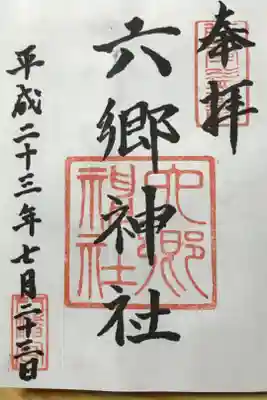 奉拝
六郷神社
平成二十三年七月二十三日
六郷
神社